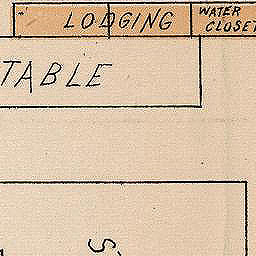 LODGING
WATER
CLOSET
TABLE
S